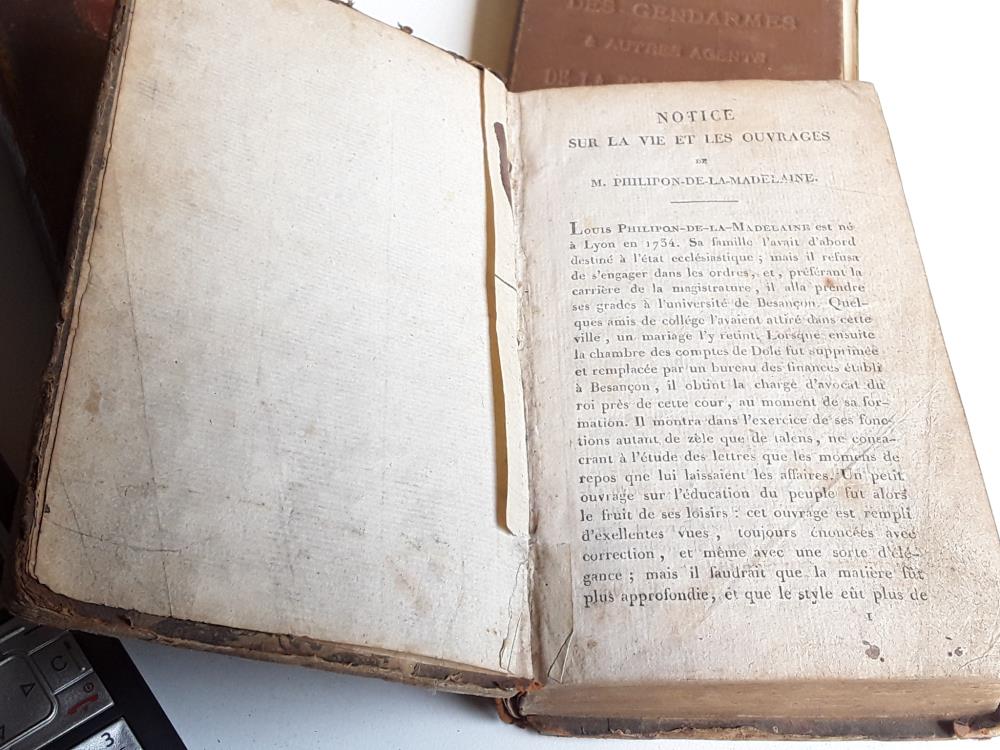 DES GENDARMES
& AUTRES AGENTS
DE LA
NOTICE
SUR LA VIE ET LES OUVRAGES
DE
M. PHILIPON-DE-LA-MADELAINE.
LOUIS PHILIPON-DE-LA-MADELAINE est né
à Lyon en 1734. Sa famille l'avait d'abord
destiné à l'état ecclésiastique ; mais il refusa
de s'engager dans les ordres, et, préférant la
carrière de la magistrature, il alla prendre
ses grades à l'université de Besançon. Quel-
ques amis de collége l'avaient attiré dans cette
ville, un mariage l'y retint. Lorsque ensuite
la chambre des comptes de Dole fut supprimée
et remplacée par un bureau des finances établi
à Besançon, il obtint la charge d'avocat du
roi près de cette cour, au moment de sa for-
mation. Il montra dans l'exercice de ses fonc-
tions autant de zèle que de talens, ne consa-
crant à l'étude des lettres que les momens de
repos qne lui laissaient les affaires. Un petit
ouvrage sur l'éducation du peuple fut alors
le fruit de ses loisirs : cet ouvrage est rempli
d'exellentes vues, toujours énoncées avec
correction, et même avec une sorte d'élé-
gance ; mais il faudrait que la matière fût
plus approfondie, et que le style eût plus de
1
C
3